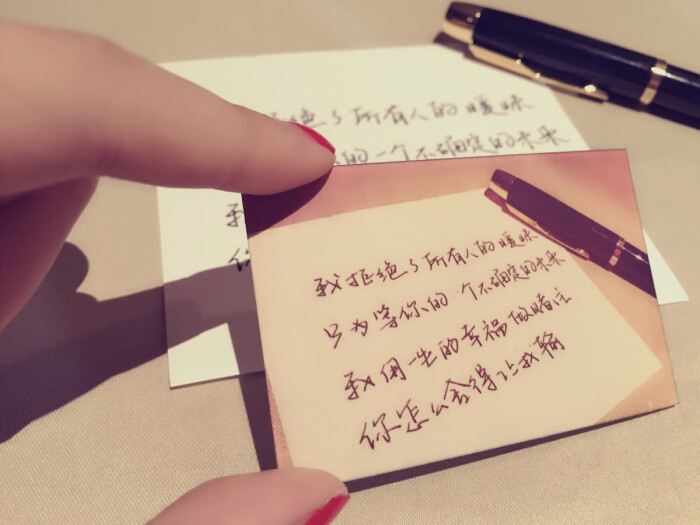 我拒绝了所有人的暧昧
只为等你的一个不确定的未来
我用一生的幸福做赌注
你怎么舍得让我输
绝了所有人的暧昧
的一个不确定的未来
我
你